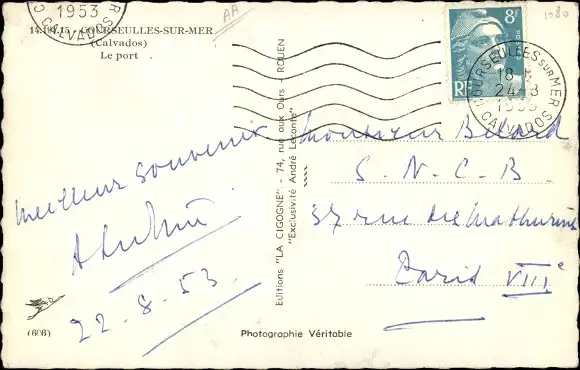 1953
CALVADOS
14.191.15. COURSEULLES-SUR-MER
(Calvados)
Le port
AA
1080
8F
RF
COURSEULLES SUR MER
18 H
24-8
1953
CALVADOS
Meilleur souvenir
22-8-53
(606)
Editions "LA CIGOGNE" - 74, rue aux Ours - ROUEN
"Exclusivité André Leconte"
Photographie Véritable
Monsieur
S.N.C.B.
37 rue des Mathurins
Paris VIIIe